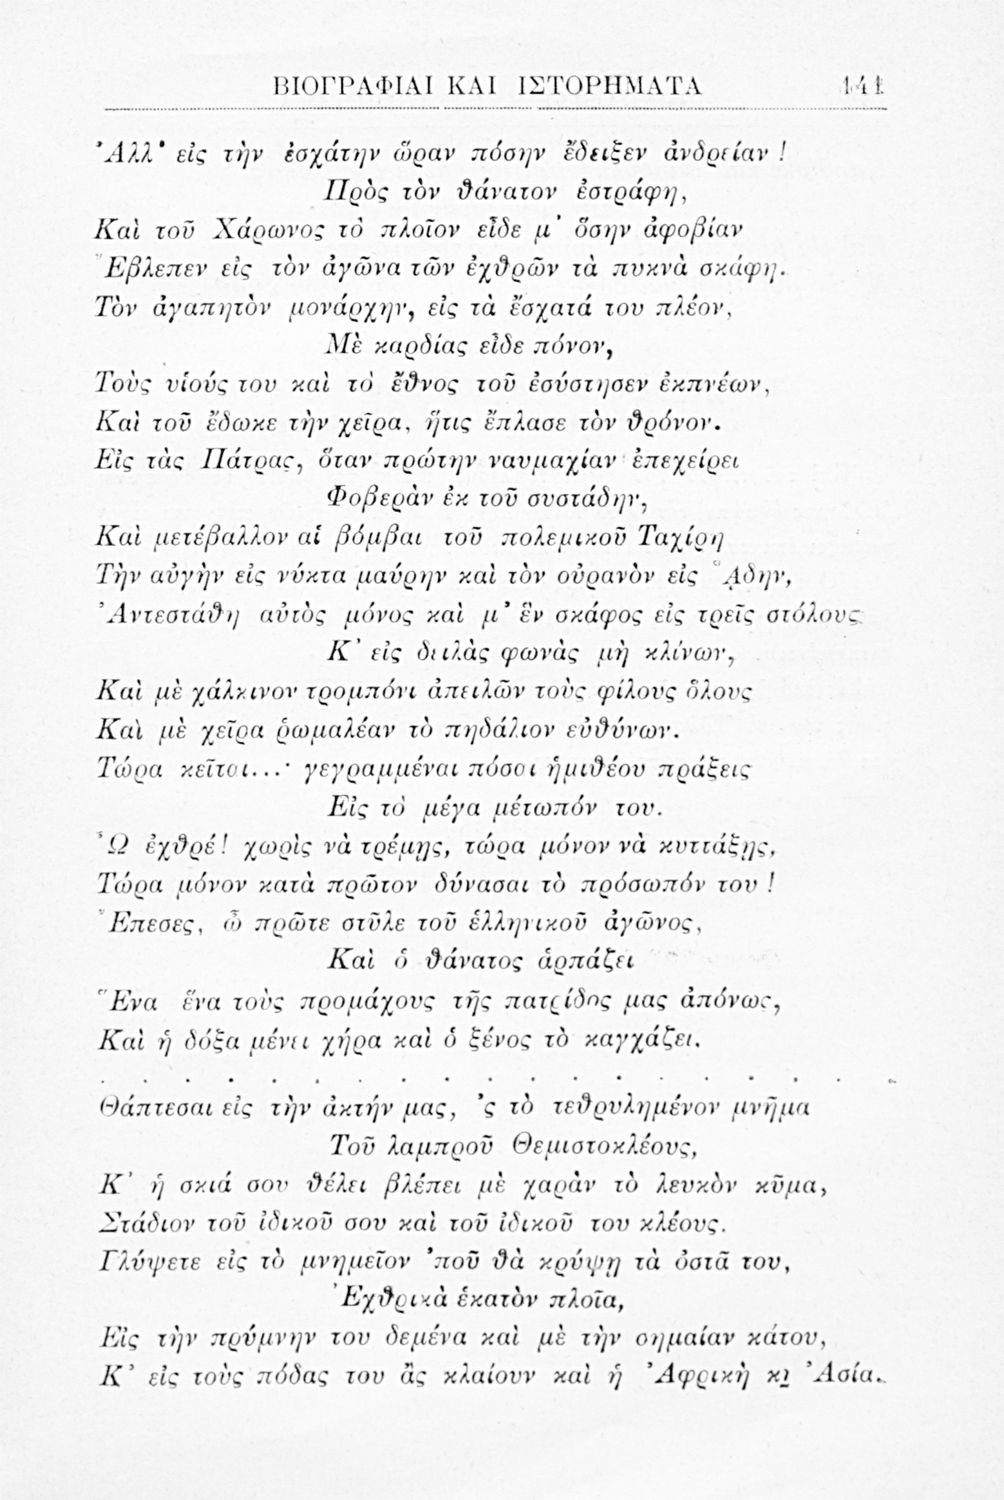 ΒΙΟΓΡΑΦΙΑΙ ΚΑΙ ΙΣΤΟΡΗΜΑΤΑ 141
Ἀλλ' εἰς τὴν ἐσχάτην ὥραν πόσην ἔδειξεν ἀνδρείαν !
Πρὸς τὸν θάνατον ἐστράφη,
Καὶ τοῦ Χάρωνος τὸ πλοῖον εἶδε μ' ὅσην ἀφοβίαν
Ἔβλεπεν εἰς τὸν ἀγῶνα τῶν ἐχθρῶν τὰ πυκνὰ σκάφη.
Τὸν ἀγαπητὸν μονάρχην, εἰς τὰ ἔσχατά του πλέον,
Μὲ καρδίας εἶδε πόνον,
Τοὺς υἱούς του καὶ τὸ ἔθνος τοῦ ἐσύστησεν ἐκπνέων,
Καὶ τοῦ ἔδωκε τὴν χεῖρα, ἥτις ἔπλασε τὸν θρόνον.
Εἰς τὰς Πάτρας, ὅταν πρώτην ναυμαχίαν ἐπεχείρει
Φοβερὰν ἐκ τοῦ συστάδην,
Καὶ μετέβαλλον αἱ βόμβαι τοῦ πολεμικοῦ Ταχίρη
Τὴν αὐγὴν εἰς νύκτα μαύρην καὶ τὸν οὐρανὸν εἰς ᾍδην,
Ἀντεστάθη αὐτὸς μόνος καὶ μ' ἓν σκάφος εἰς τρεῖς στόλους
Κ' εἰς δειλὰς φωνὰς μὴ κλίνων,
Καὶ μὲ χάλκινον τρομπόνι ἀπειλῶν τοὺς φίλους ὅλους
Καὶ μὲ χεῖρα ῥωμαλέαν τὸ πηδάλιον εὐθύνων.
Τώρα κεῖται...· γεγραμμέναι πόσαι ἡμιθέου πράξεις
Εἰς τὸ μέγα μέτωπόν του.
Ὦ ἐχθρέ! χωρὶς νὰ τρέμῃς, τώρα μόνον νὰ κυττάξῃς,
Τώρα μόνον κατὰ πρῶτον δύνασαι τὸ πρόσωπόν του !
Ἔπεσες, ὦ πρῶτε στῦλε τοῦ ἑλληνικοῦ ἀγῶνος,
Καὶ ὁ θάνατος ἁρπάζει
Ἕνα ἕνα τοὺς προμάχους τῆς πατρίδος μας ἀπόνως,
Καὶ ἡ δόξα μένει χήρα καὶ ὁ ξένος τὸ καγχάζει.
. . . . . . . . . . . . . . . . . . .
Θάπτεσαι εἰς τὴν ἀκτήν μας, 'ς τὸ τεθρυλημένον μνῆμα
Τοῦ λαμπροῦ Θεμιστοκλέους,
Κ' ἡ σκιά σου θέλει βλέπει μὲ χαρὰν τὸ λευκὸν κῦμα,
Στάδιον τοῦ ἰδικοῦ σου καὶ τοῦ ἰδικοῦ του κλέους.
Γλύψετε εἰς τὸ μνημεῖον 'ποῦ θὰ κρύψῃ τὰ ὀστᾶ του,
Ἐχθρικὰ ἑκατὸν πλοῖα,
Εἰς τὴν πρύμνην του δεμένα καὶ μὲ τὴν σημαίαν κάτου,
Κ' εἰς τοὺς πόδας του ἂς κλαίουν καὶ ἡ Ἀφρικὴ κι Ἀσία.